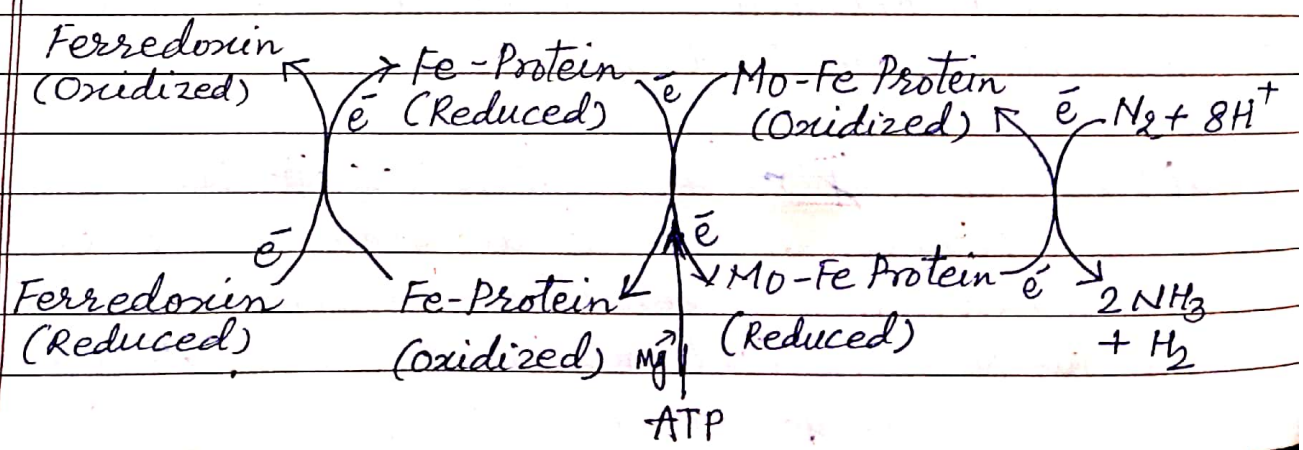 Ferredoxin
(Oxidized)
Fe-Protein
(Reduced)
ē
ē
Mo-Fe Protein
(Oxidized)
ē
N₂ + 8H⁺
ē
Ferredoxin
(Reduced)
Fe-Protein
(oxidized)
ē
Mo-Fe Protein
(Reduced)
ē
2 NH₃
+ H₂
Mg
ATP